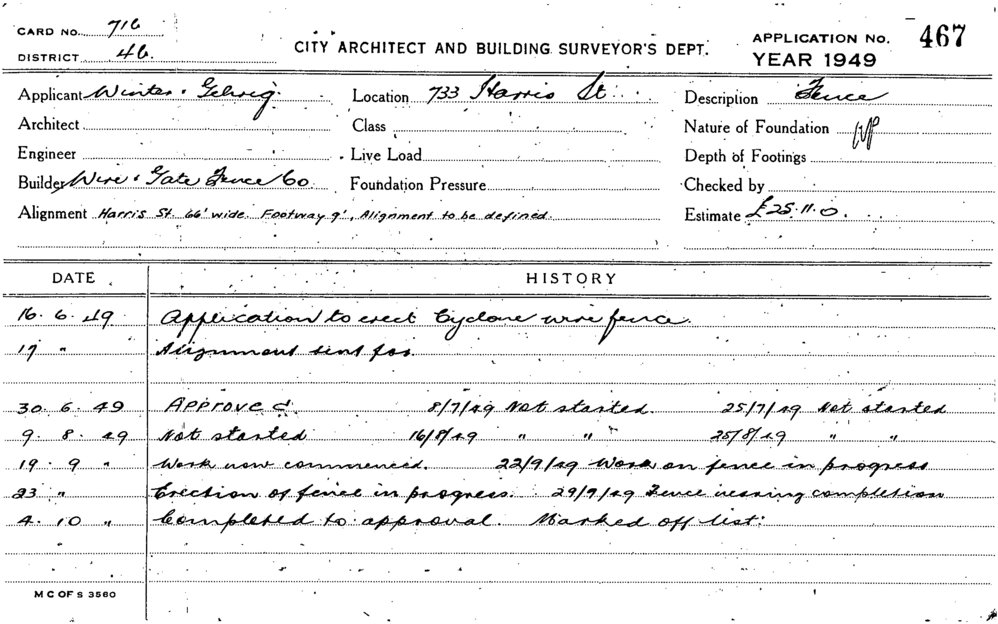 CARD NO. 716
DISTRICT 46
CITY ARCHITECT AND BUILDING SURVEYOR'S DEPT.
APPLICATION NO. 467
YEAR 1949
Applicant Winter & Gehrig.
Location 733 Harris St.
Description Fence
Architect
Class
Nature of Foundation
Engineer
Live Load
Depth of Footings
Builder Wire & Gate Fence Co.
Foundation Pressure
Checked by
Alignment Harris St 66' wide. Footway 9', Alignment to be defined.
Estimate £25.11.0.
DATE HISTORY
16. 6. 49 Application to erect Cyclone wire fence.
17 " Alignment sent for.
30. 6. 49 Approved. 8/7/49 Not started. 25/7/49 Not started
9. 8. 49 Not started 16/8/49 " " 25/8/49 " "
19. 9 " Work now commenced. 22/9/49 Work on fence in progress
23 " Erection of fence in progress. 29/9/49 Fence nearing completion
4. 10 " Completed to approval. Marked off list.
M C OF S 3560